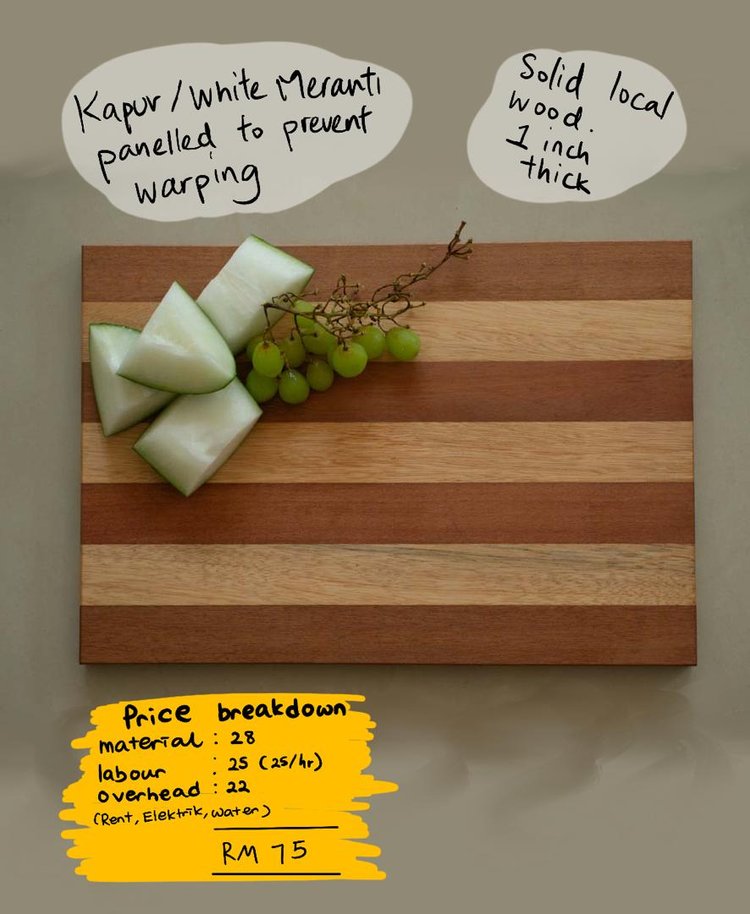 Kapur/White Meranti
panelled to prevent
warping
Solid local
wood.
1 inch
thick
Price breakdown
material : 28
labour : 25 (25/hr)
overhead : 22
(Rent, Elektrik, water)
RM 75